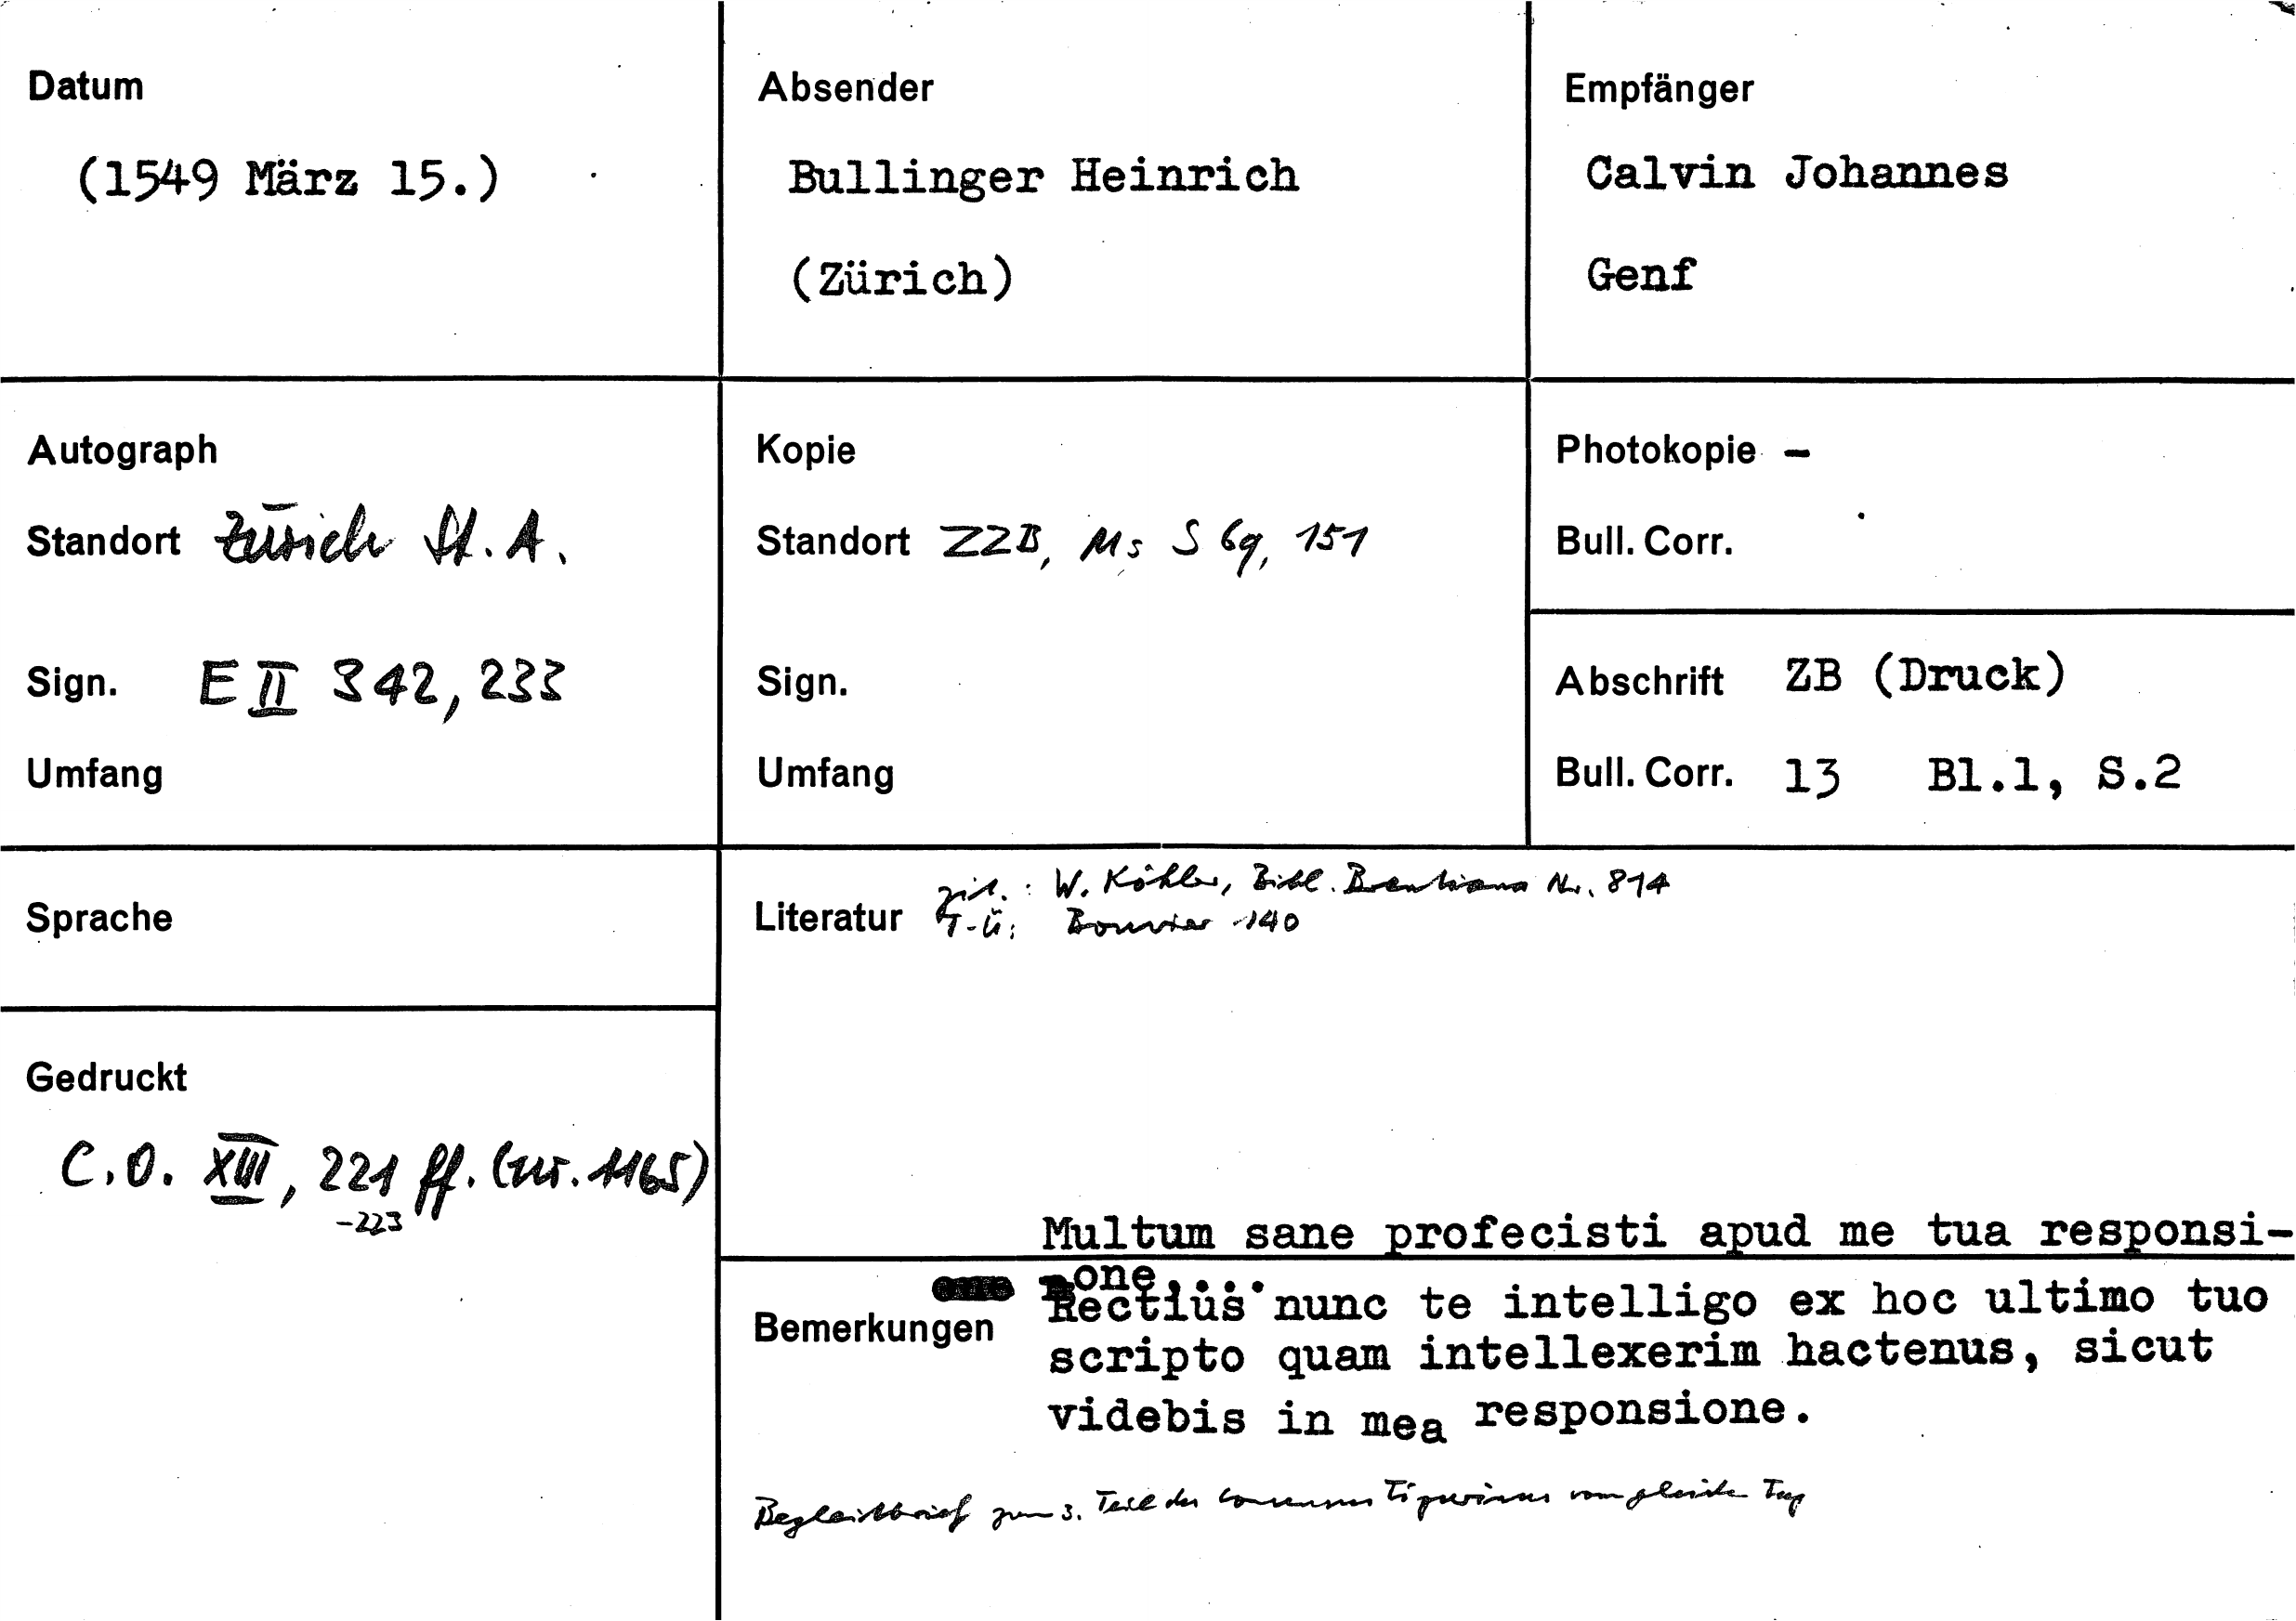 Datum
(1549 März 15.)
Absender
Bullinger Heinrich
(Zürich)
Empfänger
Calvin Johannes
Genf
Autograph
Standort Zürich St. A.
Sign. E II 342, 233
Umfang
Kopie
Standort ZZB, Ms S 69, 151
Sign.
Umfang
Photokopie -
Bull. Corr.
Abschrift ZB (Druck)
Bull. Corr. 13 Bl.1, S.2
Sprache
Gedruckt
C.O. XIII, 221 ff. (nr. 1165)
-223
zit.: W. Köhler, Bibl. Brentiana Nr. 814
Literatur T-Ü: Bouvier 140
Multum sane profecisti apud me tua responsi-
one....
Bemerkungen Rectius nunc te intelligo ex hoc ultimo tuo
scripto quam intellexerim hactenus, sicut
videbis in mea responsione.
Begleitbrief zum 3. Teil des Consensus Tigurinus vom gleichen Tag